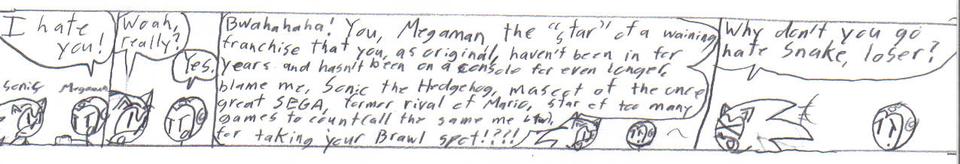 I hate
you!
Sonic
Megaman
Woah,
really?
Yes.
Bwahahaha! You, Megaman the "star" of a waining
franchise that you, as original, haven't been in for
years and hasn't been on a console for even longer,
blame me, Sonic the Hedgehog, mascot of the once
great SEGA, former rival of Mario, star of too many
games to count(all the same me
for taking your Brawl spot!?!!
Why don't you go
hate Snake, loser?